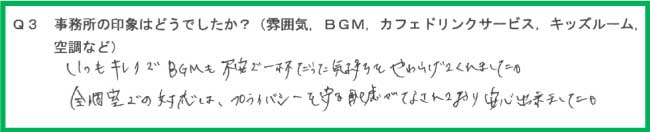 Q3 事務所の印象はどうでしたか？（雰囲気，ＢＧＭ，カフェドリンクサービス，キッズルーム，
空調など）
いつもキレイでBGMも不安で一杯だった気持ちをやわらげてくれました。
全個室での対応は、プライバシーを守る配慮がなされており安心出来ました。